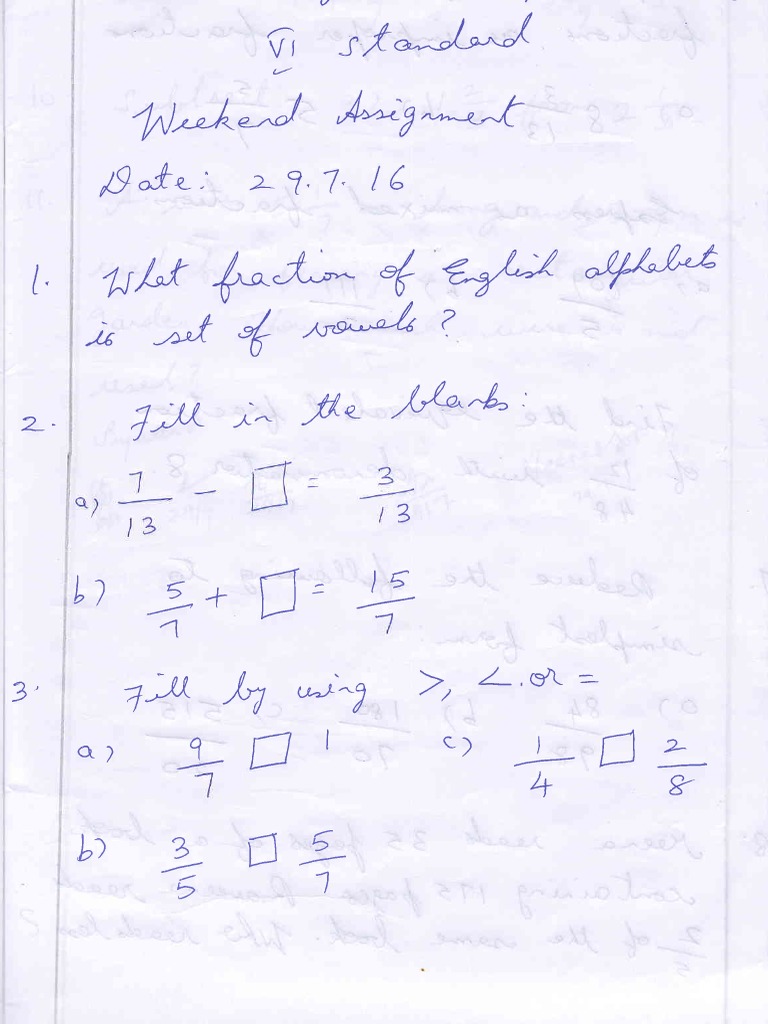 VI standard
Weekend Assignment
Date: 29.7.16
1. What fraction of English alphabets
is set of vowels?
2. Fill in the blanks:
a) 7/13 - □ = 3/13
b) 5/7 + □ = 15/7
3. Fill by using >, <. or =
a) 9/7 □ 1 c) 1/4 □ 2/8
b) 3/5 □ 5/7